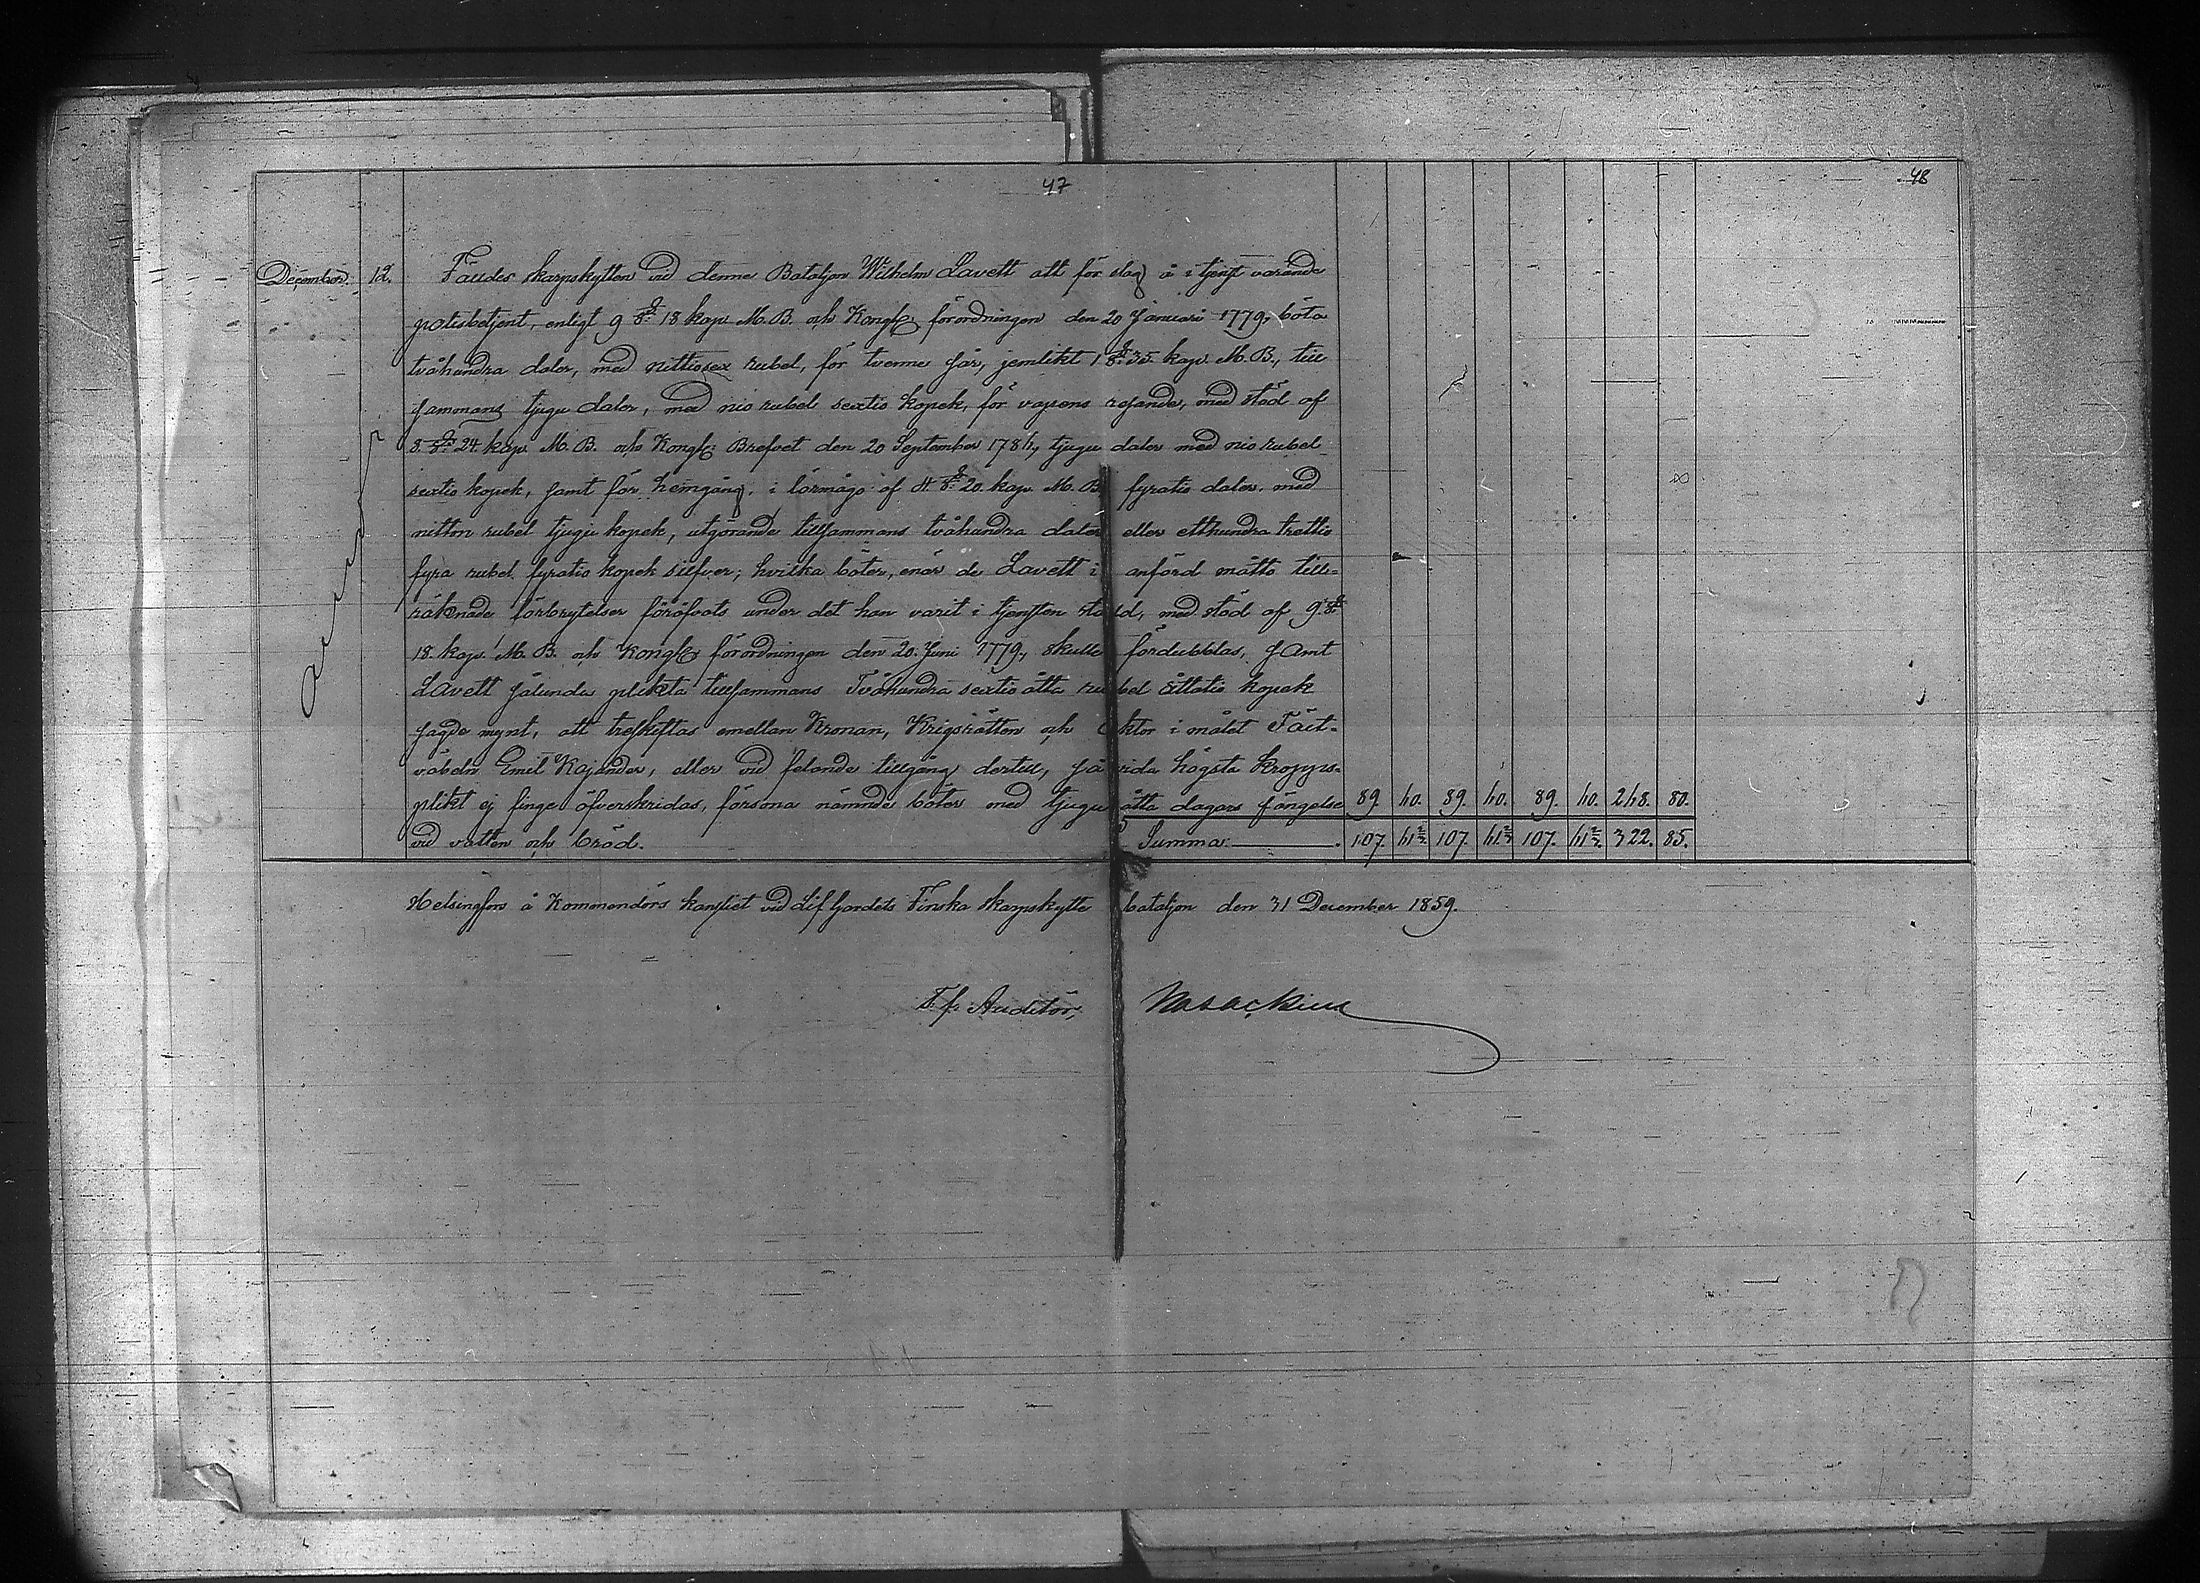 47
48
December. 12. Fäldes skarpskytten vid denne Bataljon Wilhelm Lavett att för slag å i tjenst varande
polisbetjent, enligt 9 §. 18 kap. M.B. och Kongl. förordningen den 20 Januari 1779, böta
tvåhundra daler, med nittiosex rubel, för tvenne sår, jemlikt 1 §. 35. kap. M.B., till
samman tjugu daler, med nio rubel sextio kopek, för vapens resande, med stöd af
8. §. 24. kap. M.B. och Kongl. Brefvet den 20 September 1784, tjugu daler med nio rubel
sextio kopek, samt för hemgång, i förmågo af 4 §. 20. kap. M.B. fyratio daler, med
nitton rubel tjugu kopek, utgörande tillsammans tvåhundra daler eller etthundra trettio
fyra rubel fyratio kopek silfver; hvilka böter, enär de Lavett i anförd måtto till-
räknade förbrytelser föröfvats under det han varit i tjensten stadd, med stöd af 9. §.
18. kap. M.B. och Kongl. förordningen den 20. Juni 1779, skulle fördubblas, samt
Lavett sålunda plikta tillsammans Tvåhundra sextio åtta rubel åttatio kopek
sagde mynt, att treskiftas emellan Kronan, Krigsrätten och Aktor i målet Fält-
väbeln Emil Kajander, eller vid felande tillgång dertill, så vida högsta kropps-
plikt ej finge öfverskridas, försona nämnde böter med tjuguåtta dagars fängelse 89. 60. 89. 60. 89. 60. 268. 80.
vid vatten och bröd. Summa. 107. 61 2/3. 107. 61 2/3. 107. 61 2/3. 322. 85.
Helsingfors å Kommendörs kansliet vid Lif Gardets Finska Skarpskytte bataljon den 31 December 1859.
T.f. Auditör,